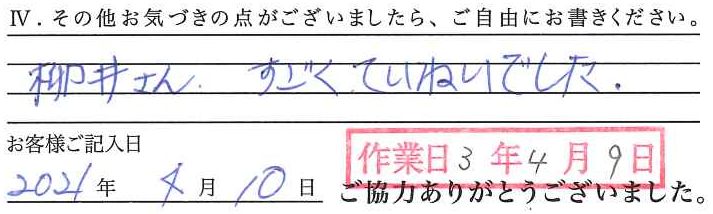 Ⅳ．その他お気づきの点がございましたら、ご自由にお書きください。
柳井さん．すごくていねいでした．
お客様ご記入日
作業日 3 年 4 月 9 日
2021 年 4 月 10 日 ご協力ありがとうございました。